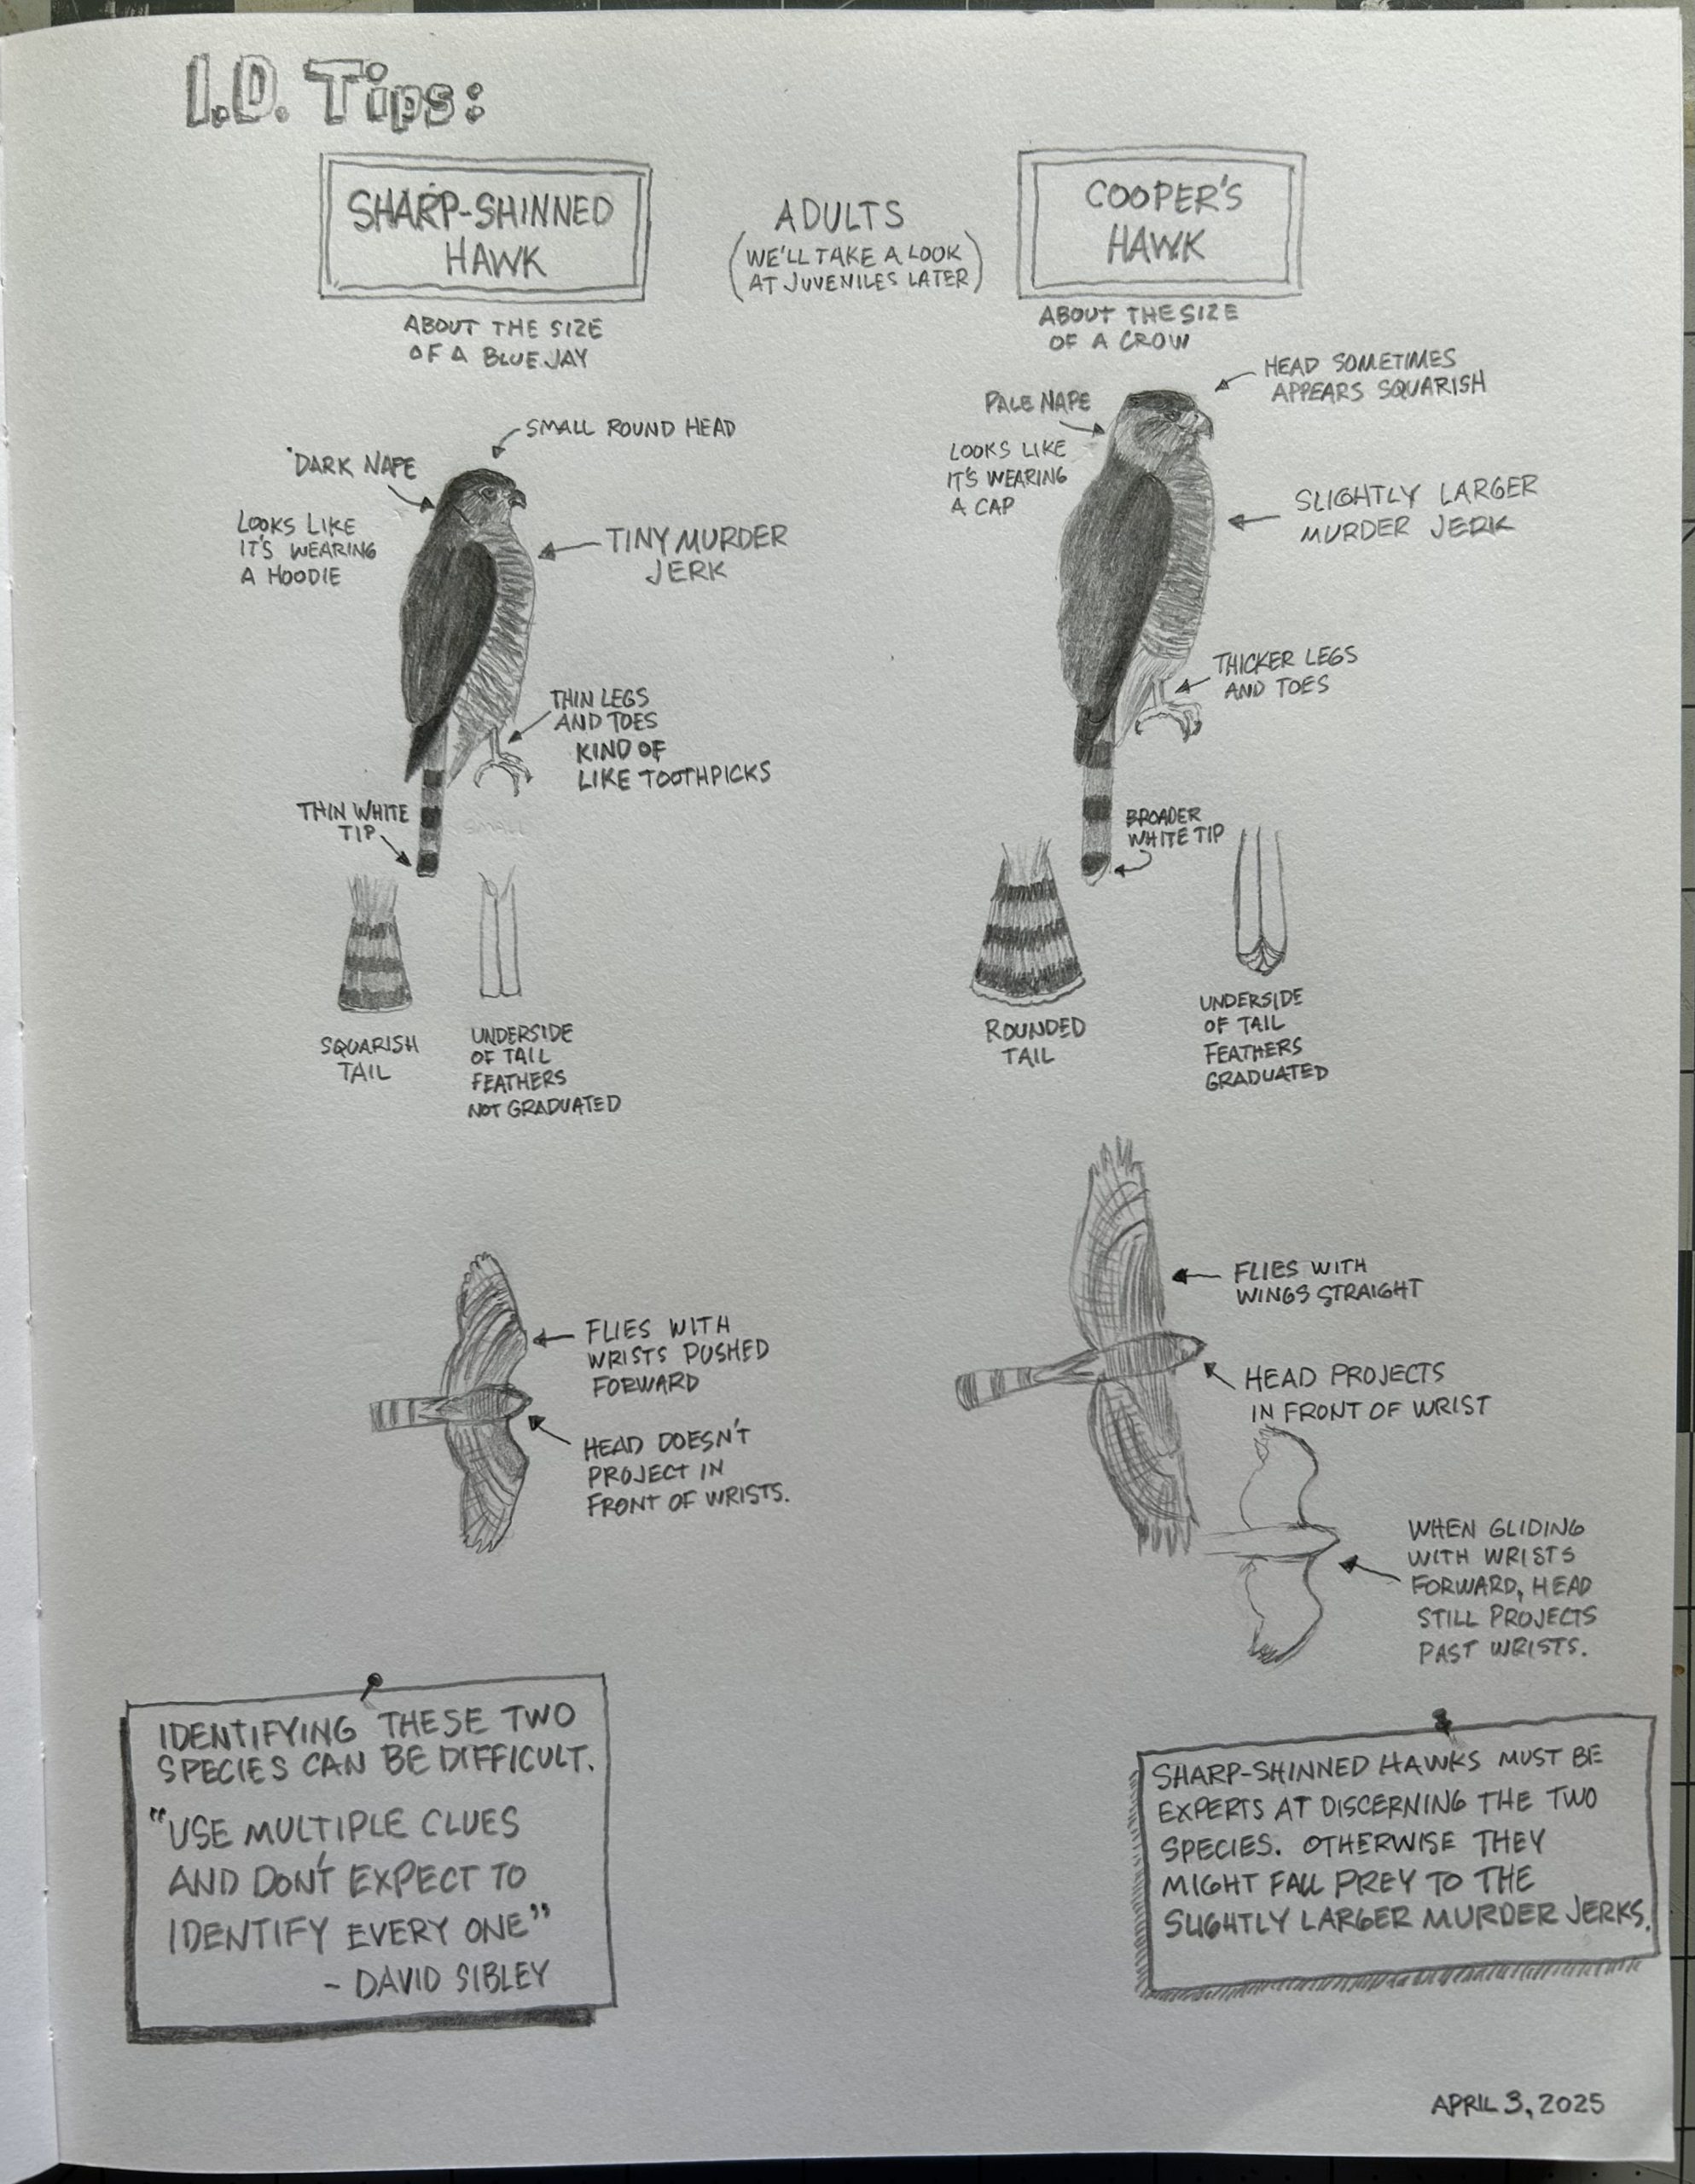 I.D. Tips:
SHARP-SHINNED
HAWK
ABOUT THE SIZE
OF A BLUE JAY
ADULTS
(WE'LL TAKE A LOOK
AT JUVENILES LATER)
COOPER'S
HAWK
ABOUT THE SIZE
OF A CROW
SMALL ROUND HEAD
DARK NAPE
LOOKS LIKE
IT'S WEARING
A HOODIE
TINY MURDER
JERK
THIN LEGS
AND TOES
KIND OF
LIKE TOOTHPICKS
THIN WHITE
TIP
SMALL
SQUARISH
TAIL
UNDERSIDE
OF TAIL
FEATHERS
NOT GRADUATED
HEAD SOMETIMES
APPEARS SQUARISH
PALE NAPE
LOOKS LIKE
IT'S WEARING
A CAP
SLIGHTLY LARGER
MURDER JERK
THICKER LEGS
AND TOES
BROADER
WHITE TIP
ROUNDED
TAIL
UNDERSIDE
OF TAIL
FEATHERS
GRADUATED
FLIES WITH
WRISTS PUSHED
FORWARD
HEAD DOESN'T
PROJECT IN
FRONT OF WRISTS.
FLIES WITH
WINGS STRAIGHT
HEAD PROJECTS
IN FRONT OF WRIST
WHEN GLIDING
WITH WRISTS
FORWARD, HEAD
STILL PROJECTS
PAST WRISTS.
IDENTIFYING THESE TWO
SPECIES CAN BE DIFFICULT.
"USE MULTIPLE CLUES
AND DON'T EXPECT TO
IDENTIFY EVERY ONE"
- DAVID SIBLEY
SHARP-SHINNED HAWKS MUST BE
EXPERTS AT DISCERNING THE TWO
SPECIES. OTHERWISE THEY
MIGHT FALL PREY TO THE
SLIGHTLY LARGER MURDER JERKS.
APRIL 3, 2025